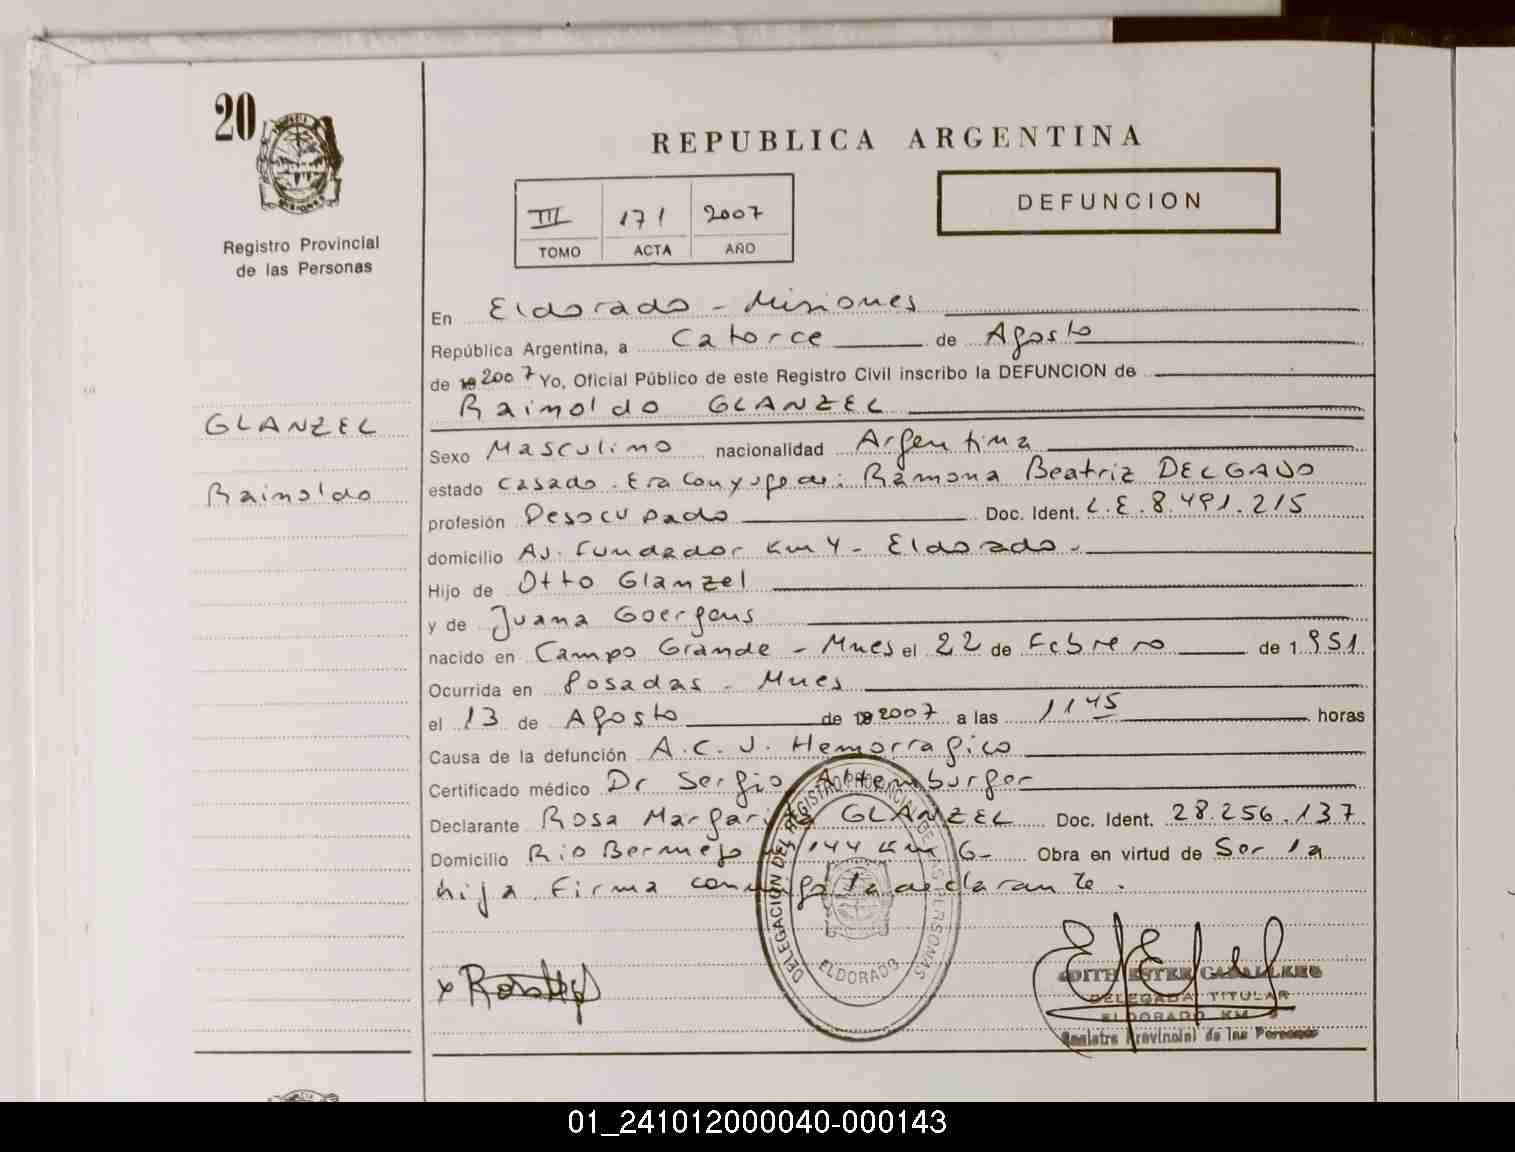 20
Registro Provincial
de las Personas
GLANZEL
Rainoldo
REPUBLICA ARGENTINA
DEFUNCION
III 171 2007
TOMO ACTA AÑO
En Eldorado - Misiones
República Argentina, a Catorce de Agosto
de 19 2007 Yo, Oficial Público de este Registro Civil inscribo la DEFUNCION de
Rainoldo GLANZEL
Sexo Masculino nacionalidad Argentina
estado Casado. Era Conyuge de: Ramona Beatriz DELGADO
profesión Desocupado Doc. Ident. L.E. 8.491.215
domicilio Av. Fundador Km 4 - Eldorado.
Hijo de Otto Glanzel
y de Juana Goergens
nacido en Campo Grande - Mnes el 22 de Febrero de 1951
Ocurrida en Posadas - Mnes
el 13 de Agosto de 19 2007 a las 1145 horas
Causa de la defunción A.C.V. Hemorragico
Certificado médico Dr Sergio Altemburger
Declarante Rosa Margarita GLANZEL Doc. Ident. 28.256.137
Domicilio Rio Bermejo 144 Km 6- Obra en virtud de Ser la
hija. Firma conmigo la declarante.
DELEGACION DEL REGISTRO PROVINCIAL DE LAS PERSONAS
ELDORADO
EDITH ESTER CABALLERO
DELEGADA TITULAR
ELDORADO KM
Registro Provincial de las Personas
01_241012000040-000143